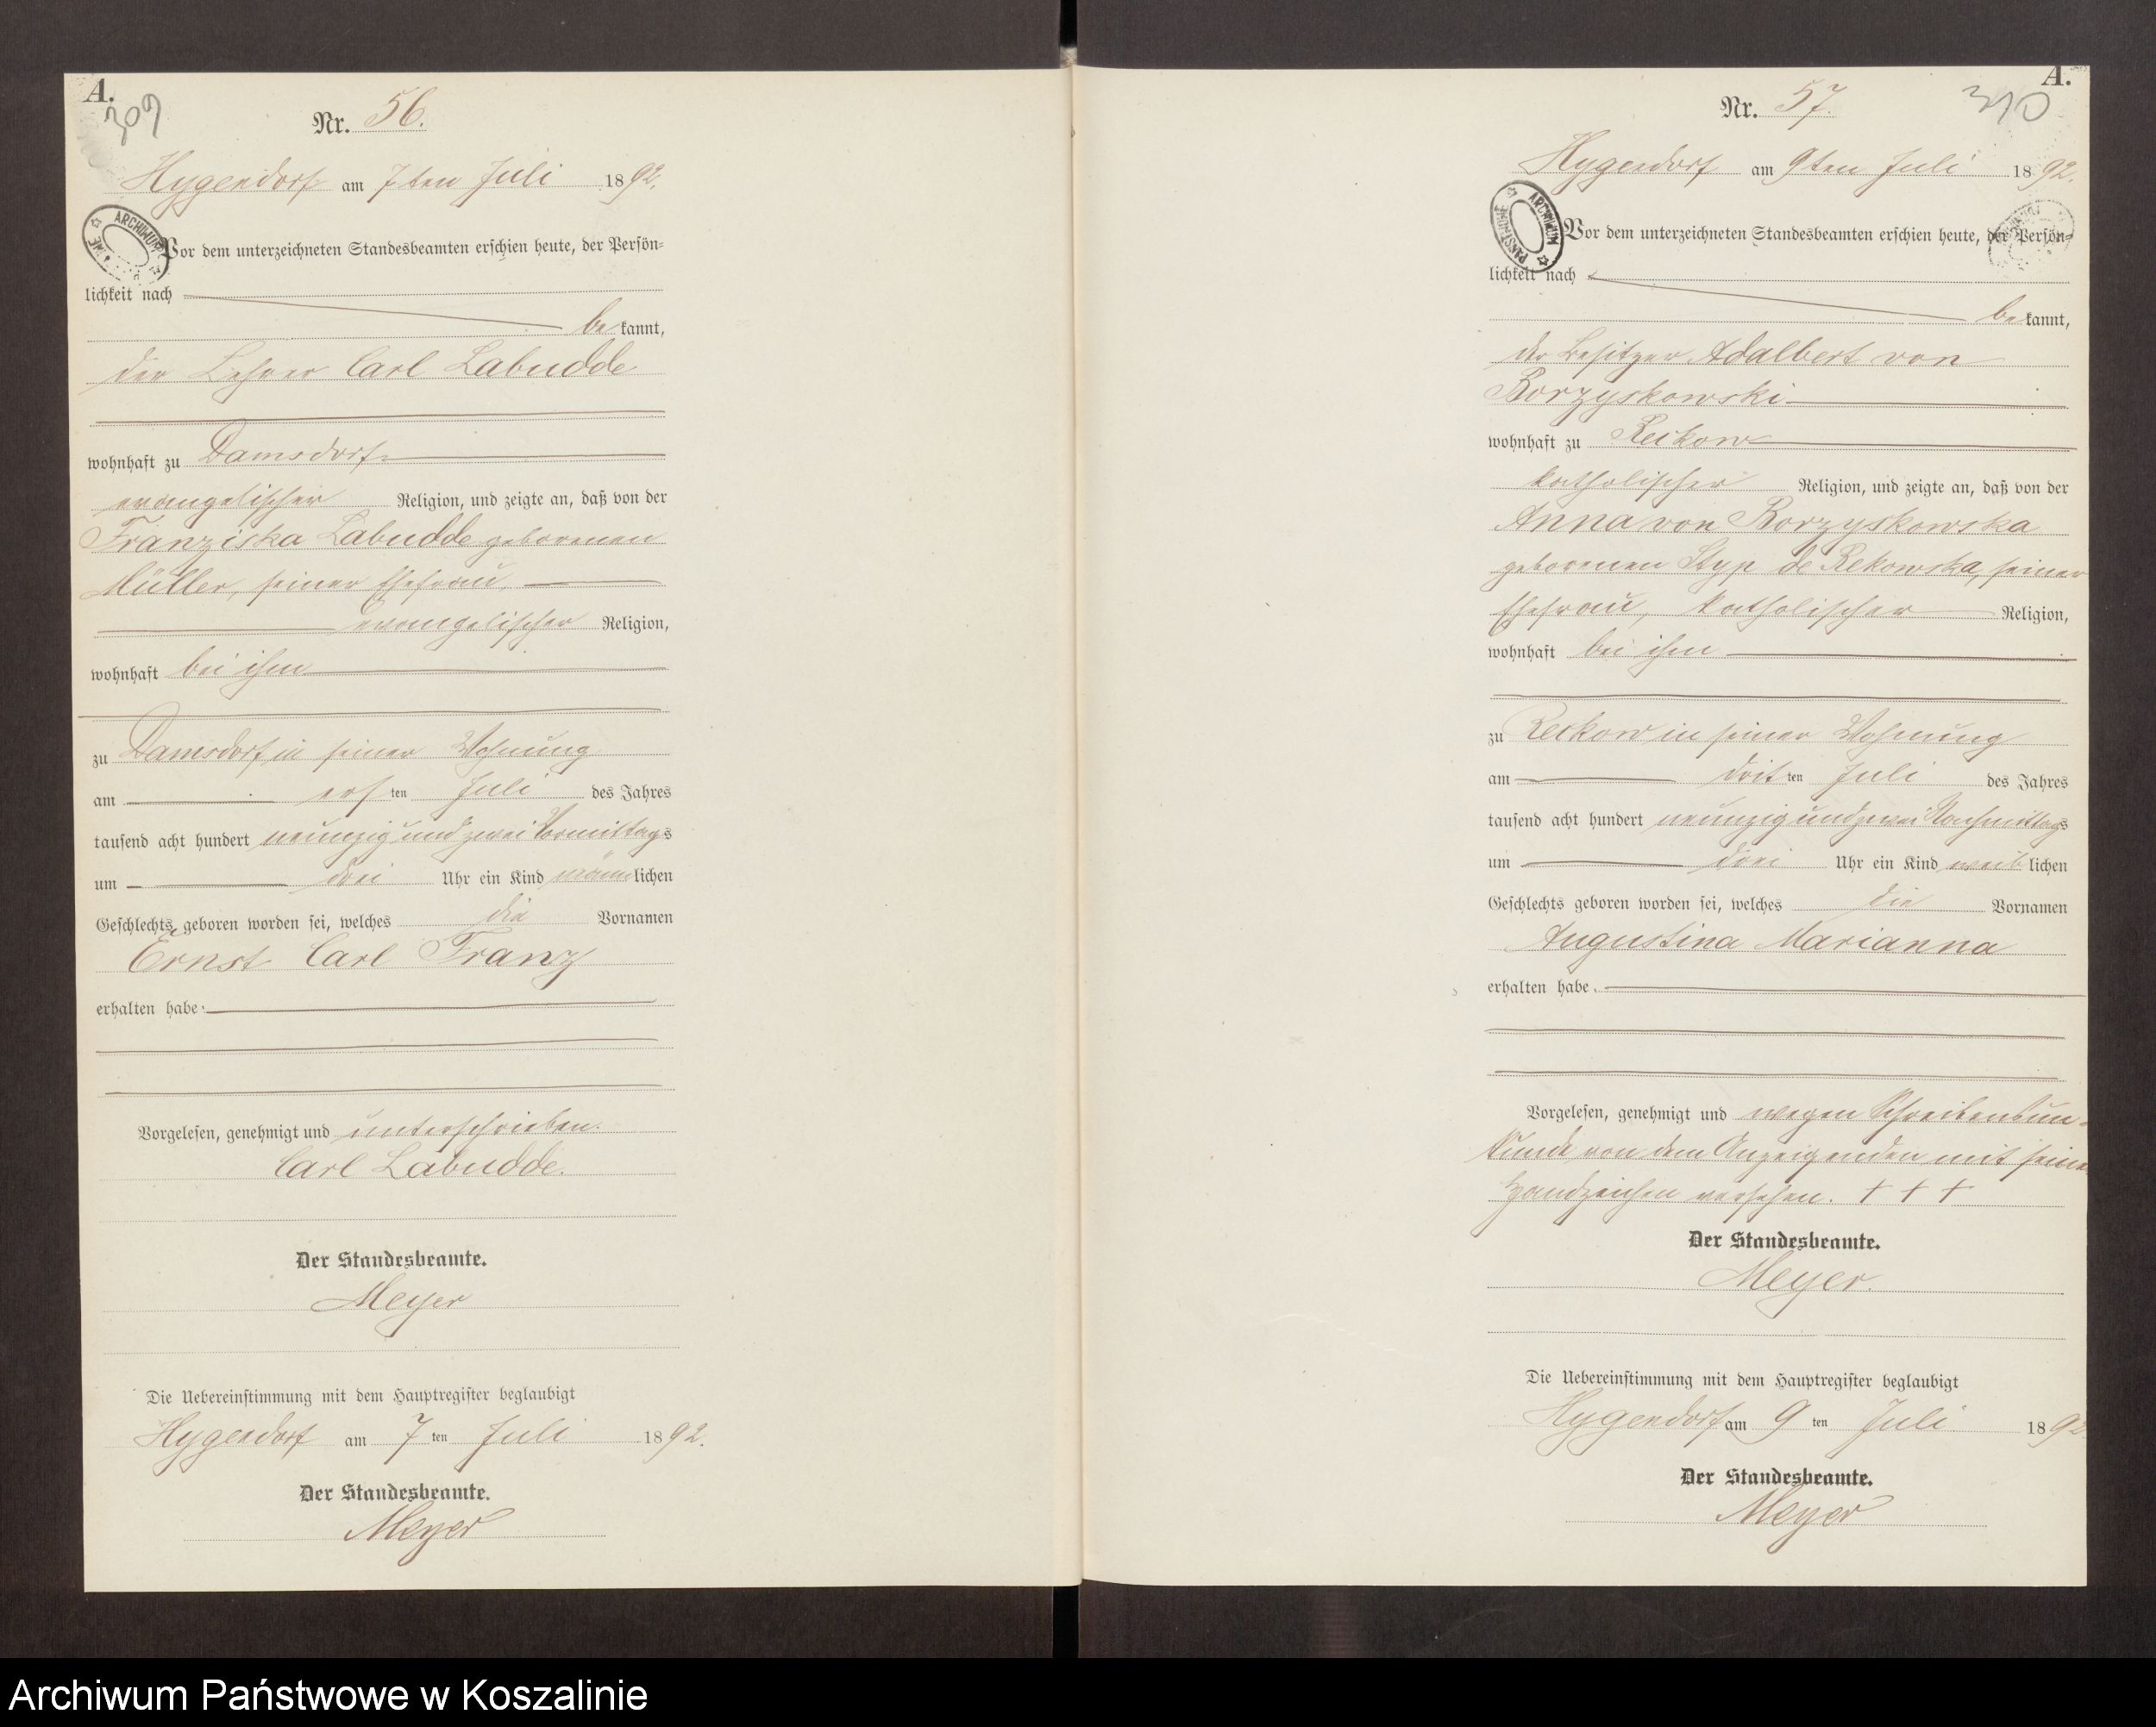 A.
309
Nr. 56.
Hygendorf am 7ten Juli 1892.
ARCHIWUM
Vor dem unterzeichneten Standesbeamten erschien heute, der Persön=
lichkeit nach
bekannt,
der Lehrer Carl Labudde
wohnhaft zu Damsdorf
evangelischer Religion, und zeigte an, daß von der
Franziska Labudde geborenen
Müller, seiner Ehefrau,
evangelischer Religion,
wohnhaft bei ihm
zu Damsdorf in seiner Wohnung
am ersten Juli des Jahres
tausend acht hundert neunzig und zwei Vormittags
um drei Uhr ein Kind männlichen
Geschlechts geboren worden sei, welches die Vornamen
Ernst Carl Franz
erhalten habe.
Vorgelesen, genehmigt und unterschrieben.
Carl Labudde.
Der Standesbeamte.
Meyer
Die Uebereinstimmung mit dem Hauptregister beglaubigt
Hygendorf am 7ten Juli 1892.
Der Standesbeamte.
Meyer
A.
310
Nr. 57.
Hygendorf am 9ten Juli 1892.
ARCHIWUM PAŃSTWOWE
Vor dem unterzeichneten Standesbeamten erschien heute, der Persön=
lichkeit nach
bekannt,
der Besitzer Adalbert von
Borzyskowski
wohnhaft zu Reckow
katholischer Religion, und zeigte an, daß von der
Anna von Borzyskowska
geborenen Styp de Rekowska, seiner
Ehefrau, katholischer Religion,
wohnhaft bei ihm
zu Reckow in seiner Wohnung
am dritten Juli des Jahres
tausend acht hundert neunzig und zwei Nachmittags
um drei Uhr ein Kind weiblichen
Geschlechts geboren worden sei, welches die Vornamen
Augustina Marianna
erhalten habe.
Vorgelesen, genehmigt und wegen Schreibensun=
kunde von dem Anzeigenden mit seinem
Handzeichen versehen. + + +
Der Standesbeamte.
Meyer.
Die Uebereinstimmung mit dem Hauptregister beglaubigt
Hygendorf am 9ten Juli 1892
Der Standesbeamte.
Meyer
Archiwum Państwowe w Koszalinie